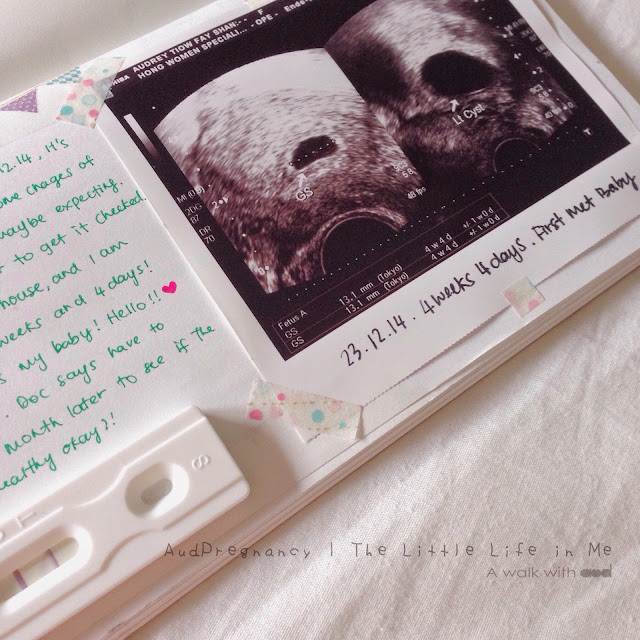 12.14, It's
some chages of
maybe expecting.
to get it checked.
house, and I am
weeks and 4days!
my baby! Hello!!
. Doc says have to
month later to see if the
healthy okay?!
AUDREY TIOW FAY SHAN:-
HONG WOMEN SPECIALI... - OPE -
GS
Lt Cyst
MI
2DG
87
DR
70
T
Fetus A
GS 13.1 mm (Tokyo) 4w4d +/-1w0d
GS 13.1 mm (Tokyo) 4w4d +/-1w0d
23.12.14. 4weeks 4days. First met Baby
S
T
AudPregnancy | The Little Life in Me
A walk with